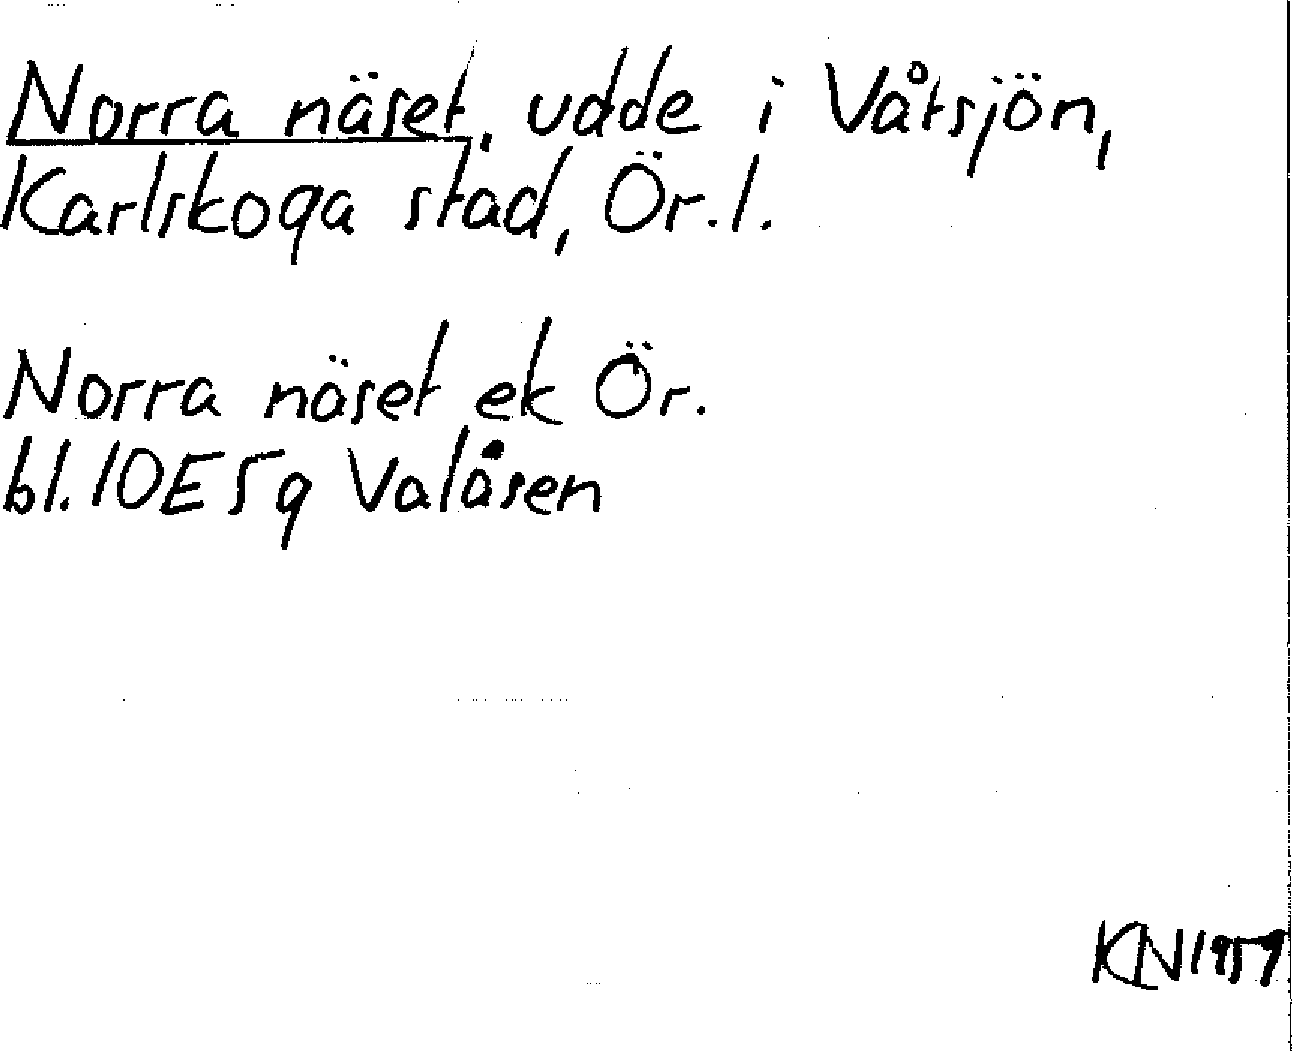 Norra näset, udde i Våtsjön,
Karlskoga stad, Ör.l.
Norra näset ek Ör.
bl. 10E5g Valåsen
KN1959